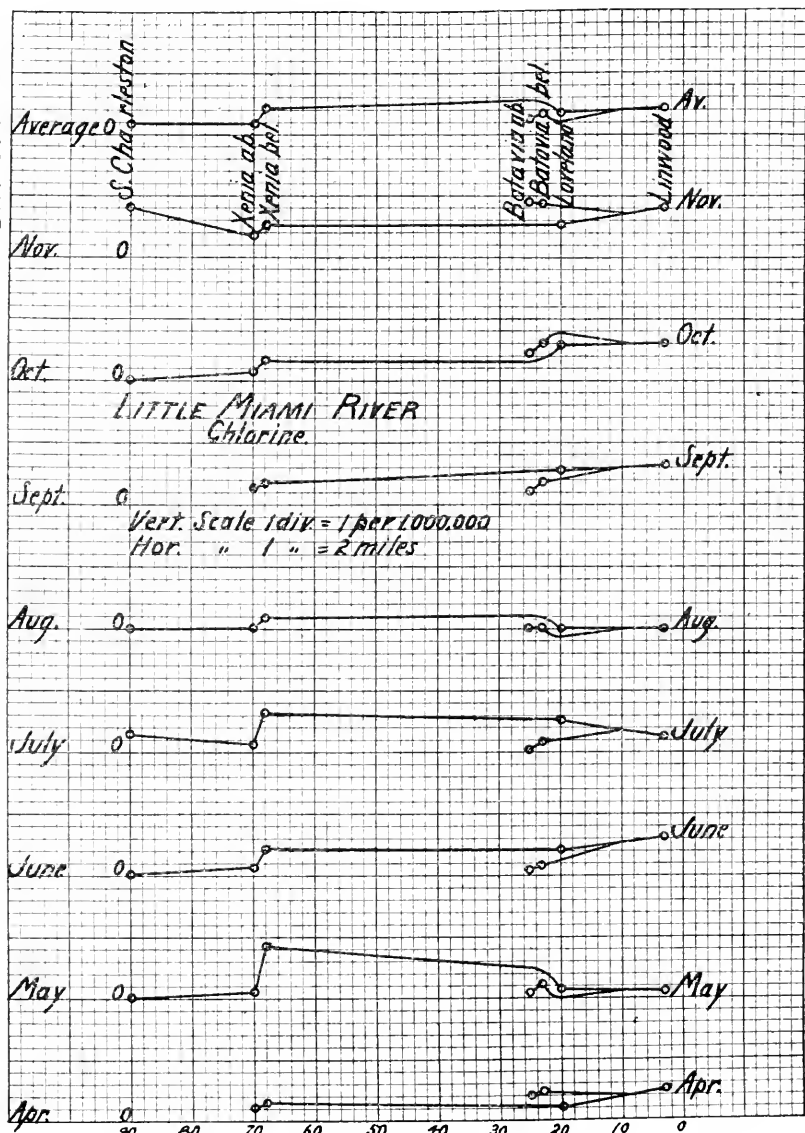 S. Charleston
Xenia ab.
Xenia bel.
Batavia ab.
Batavia bel.
Loveland
Linwood
Average 0 Av.
Nov. 0 Nov.
Oct. 0 Oct.
LITTLE MIAMI RIVER
Chlorine.
Sept. 0 Sept.
Vert. Scale 1 div. = 1 per 1.000.000
Hor. " 1 " = 2 miles
Aug. 0 Aug.
July 0 July
June 0 June
May 0 May
Apr. 0 Apr.
90 80 70 60 50 40 30 20 10 0